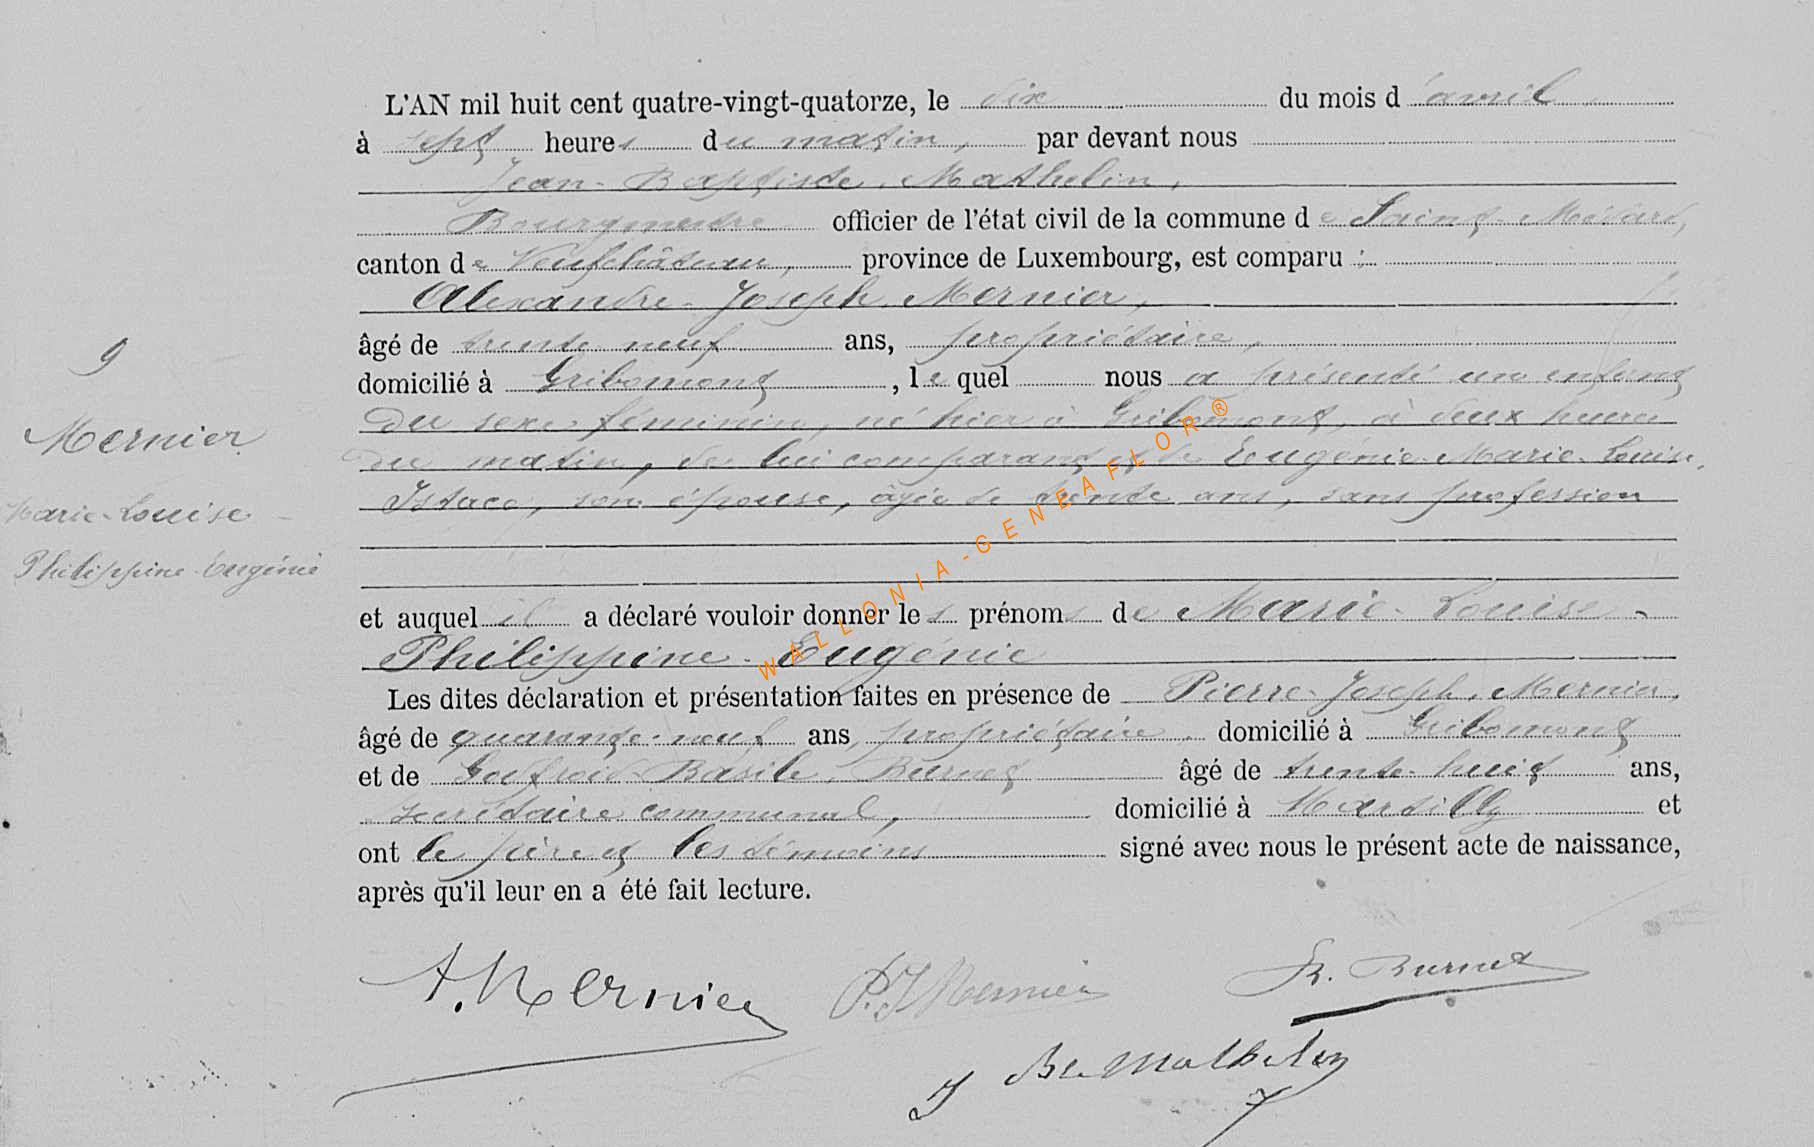 L'AN mil huit cent quatre-vingt-quatorze, le dix du mois d'avril
à sept heures du matin, par devant nous
Jean-Baptiste Mathelin,
Bourgmestre officier de l'état civil de la commune de Saint-Médard,
canton de Neufchâteau, province de Luxembourg, est comparu :
Alexandre-Joseph Mernier,
âgé de trente-neuf ans, propriétaire,
domicilié à Gribomont, lequel nous a présenté un enfant
du sexe féminin, né hier à Gribomont, à deux heures
du matin, de lui comparant et de Eugénie-Marie-Louise
Istace, son épouse, âgée de trente ans, sans profession
et auquel il a déclaré vouloir donner les prénoms de Marie-Louise-
Philippine-Eugénie
Les dites déclaration et présentation faites en présence de Pierre-Joseph Mernier,
âgé de quarante-neuf ans, propriétaire, domicilié à Gribomont
et de Godfroid-Basile Burnet âgé de trente-huit ans,
secrétaire communal, domicilié à Martilly et
ont le père et les témoins signé avec nous le présent acte de naissance,
après qu'il leur en a été fait lecture.
9
Mernier
Marie-Louise-
Philippine-Eugénie
WALLONIA-GENEAFLOR®
A. Mernier
P. J. Mernier
Burnet
J Bte Mathelin